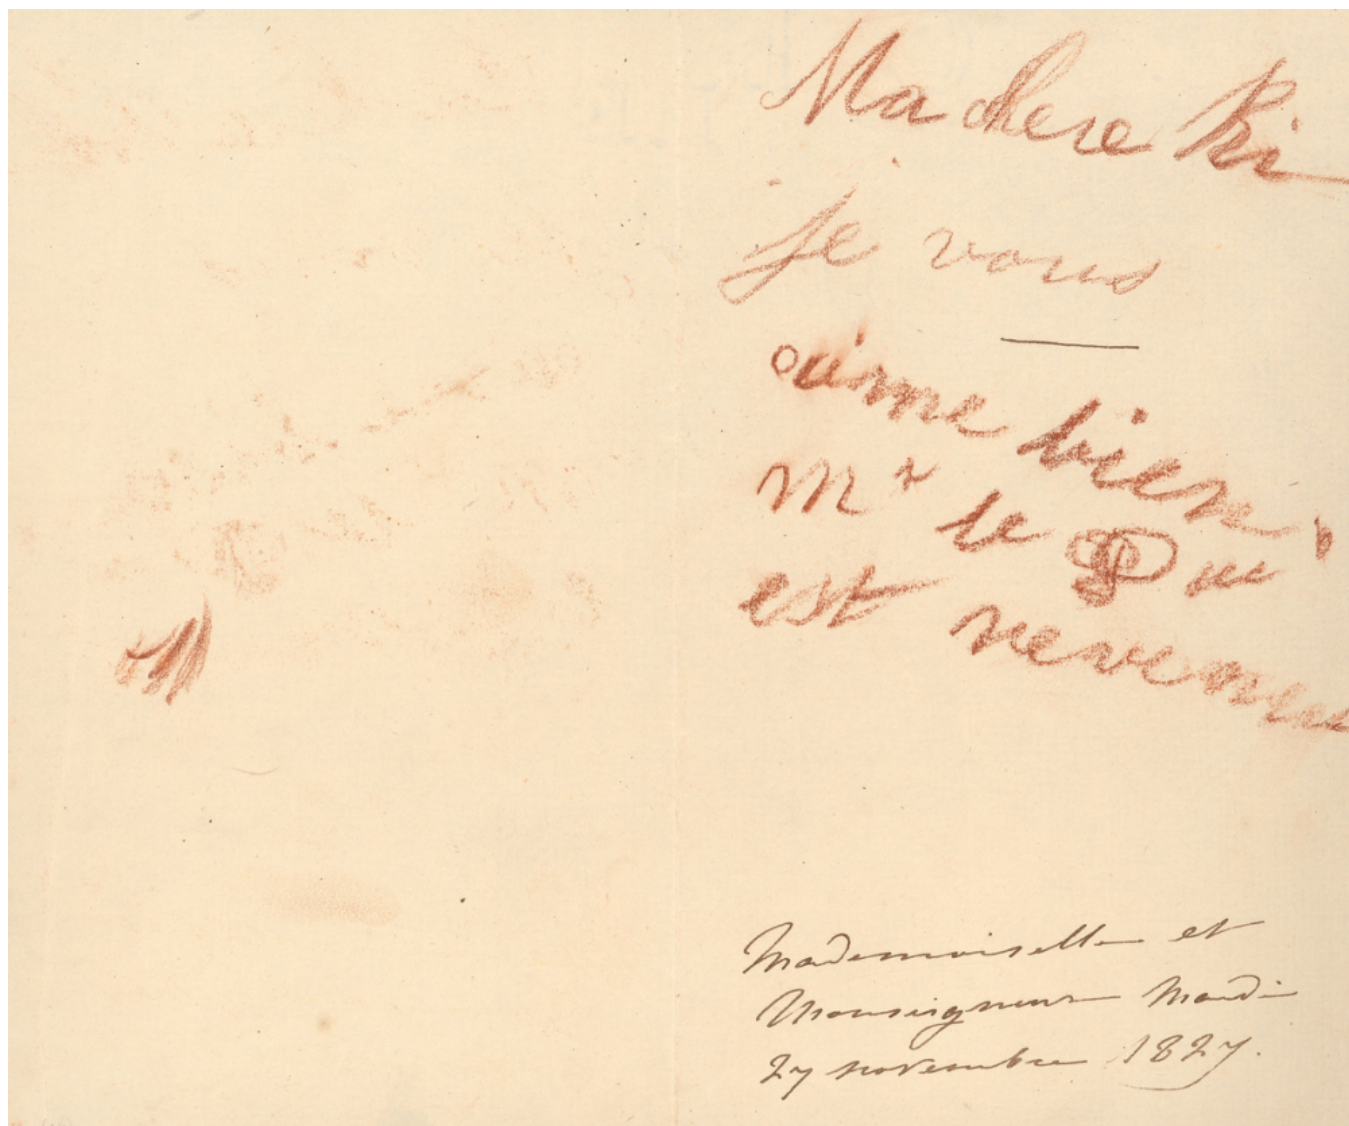 Ma chere Ki
je vous
aime bien
Mr le Duc
est revenu
Mademoiselle et
Monseigneur Mardi
27 novembre 1827.